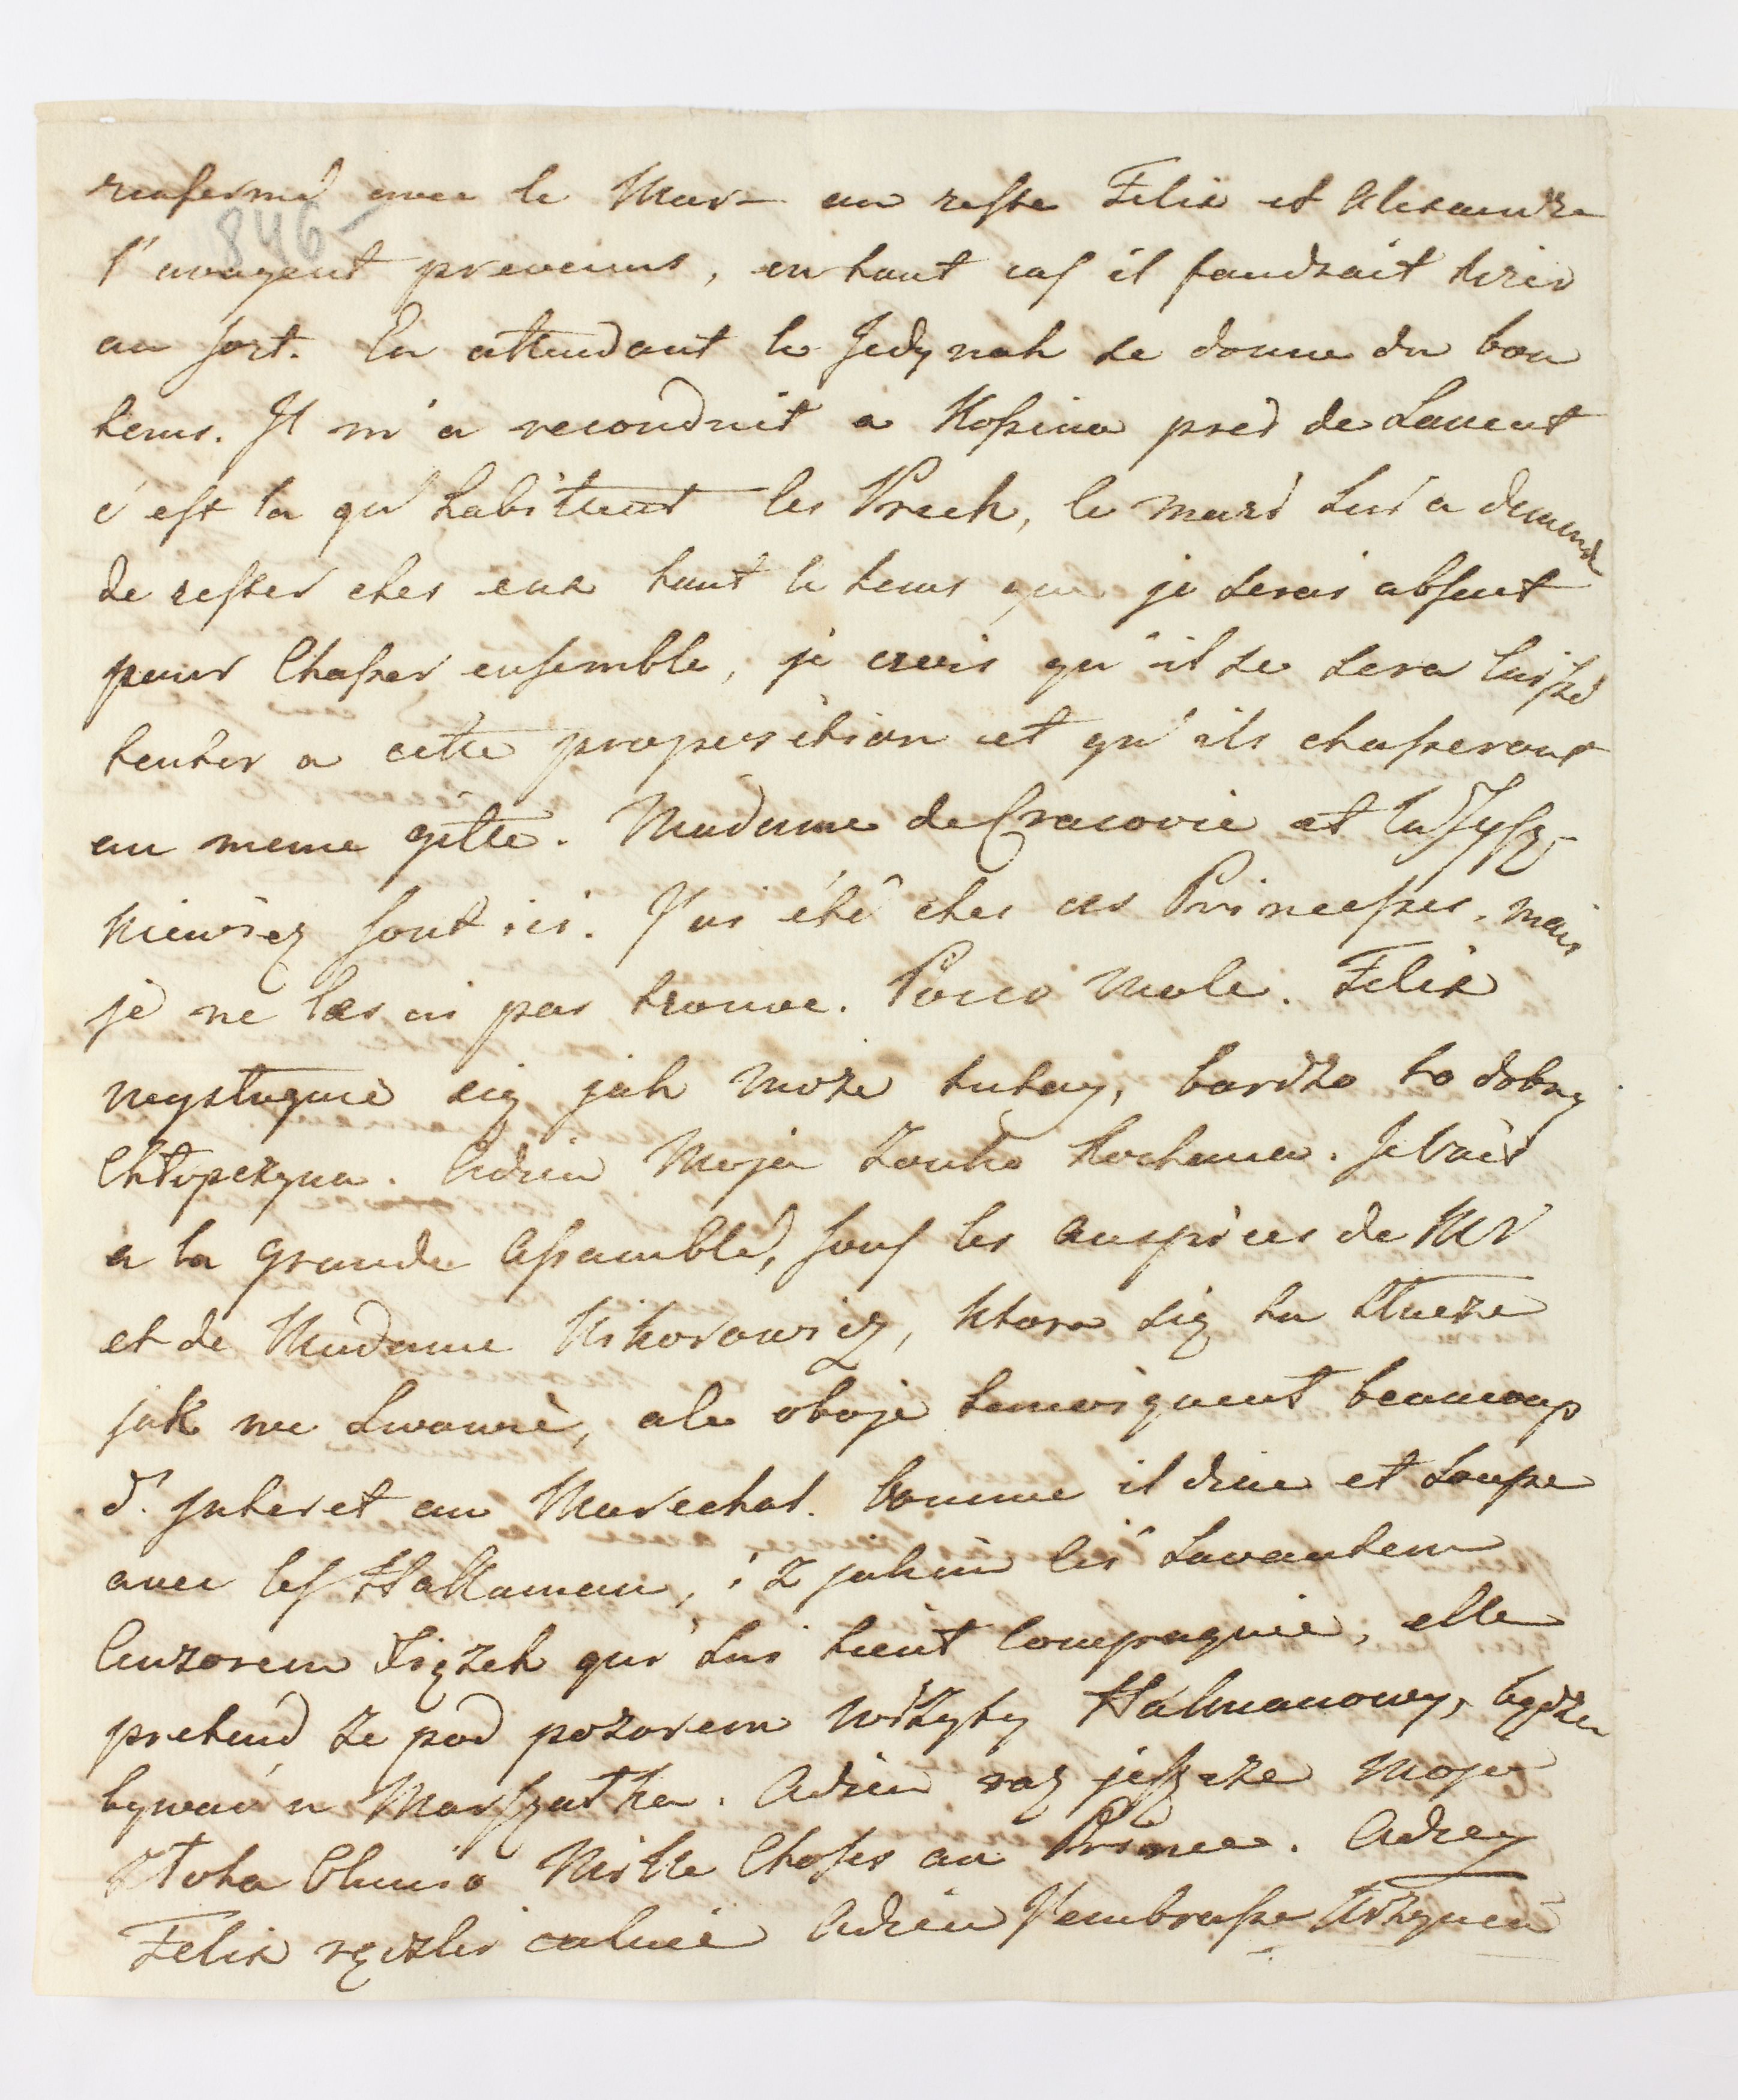 renfermé avec le Mar- au reste Felix et Alexandre
846
l'avoyent prevenus, en tout cas il faudrait tirer
au sort. En attendant le Jedynak se donne du bon
tems. Il m'a recondruit a Kosina près de Lancut
c'est la qu'habitent les Prek, le mari lui a demandé
de rester ches eux tout le tems que je serais absent
pour Chasser ensemble, je crois qu'il se sera laissé
tenter a cette proposition et qu'ils chasseront
au meme gitte. Madame de Cracovie et la Tysz-
kiewicz sont ici. J'ai été ches ces Princesses, mais
je ne les ai pas trouve. Poco male. Felix
wysługuie się jak może tutay, bardzo to dobry
Chłopczyna. Adieu Moja Zonko Kochana. Je vais
a la grande Assamblé, sous les auspices de Mr
et de Madame Nikorowicz, ktora się tu tłucze
jak we Lwowie, ale oboje temoignent beaucoup
d'Interet au Marechal. Comme il dine et soupe
avec les Hallaman, i z jakim sis Lavantem
Cuzorem Xiązek qui lui tient Compagnie, elle
pretend ze pod pozorem wizyty Halmanowy, będzie
bywać u Marszałka. Adieu raz jeszcze Moja
Złota Clunio Mille Choses au Prince. Adzey
Felix rączki caluie Adieu J'embrasse